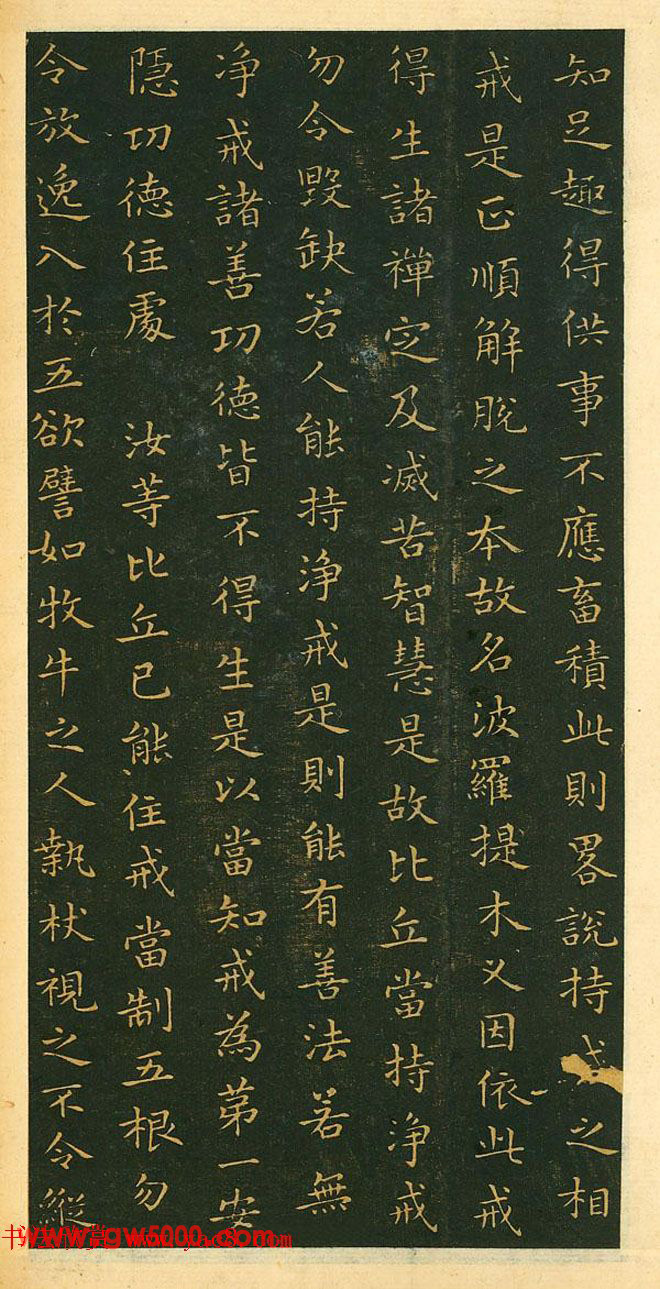 知足趣得供事不應畜積此則畧說持戒之相
戒是正順解脫之本故名波羅提木叉因依此戒
得生諸禪定及滅苦智慧是故比丘當持淨戒
勿令毀缺若人能持淨戒是則能有善法若無
淨戒諸善功德皆不得生是以當知戒為第一安
隱功德住處　汝等比丘已能住戒當制五根勿
令放逸入於五欲譬如牧牛之人執杖視之不令縱
www.gw5000.com